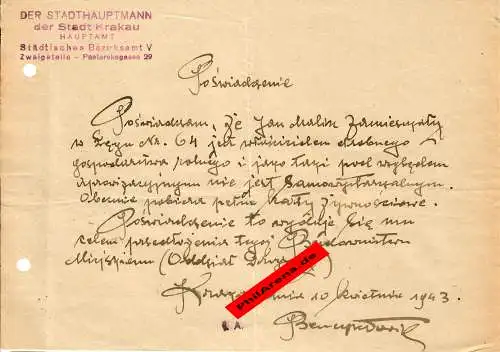 DER STADTHAUPTMANN
der Stadt Krakau
HAUPTAMT
Städtisches Bezirksamt V
Zweigstelle – Pasterskagasse 29
Poświadczenie
Poświadczam, że Jan Malik zamieszkały
w Nr. 64 jest właścicielem drobnego
gospodarstwa rolnego i jako taki pod względem
aprowizacyjnym nie jest samowystarczalnym.
Obecnie pobiera pełne karty żywnościowe.
Poświadczenie to wydaje się mu
celem przedłożenia tegoż Budownictwu
Miejskiemu (Oddział
PhilArena.de
dnia 10 kwietnia 1943.